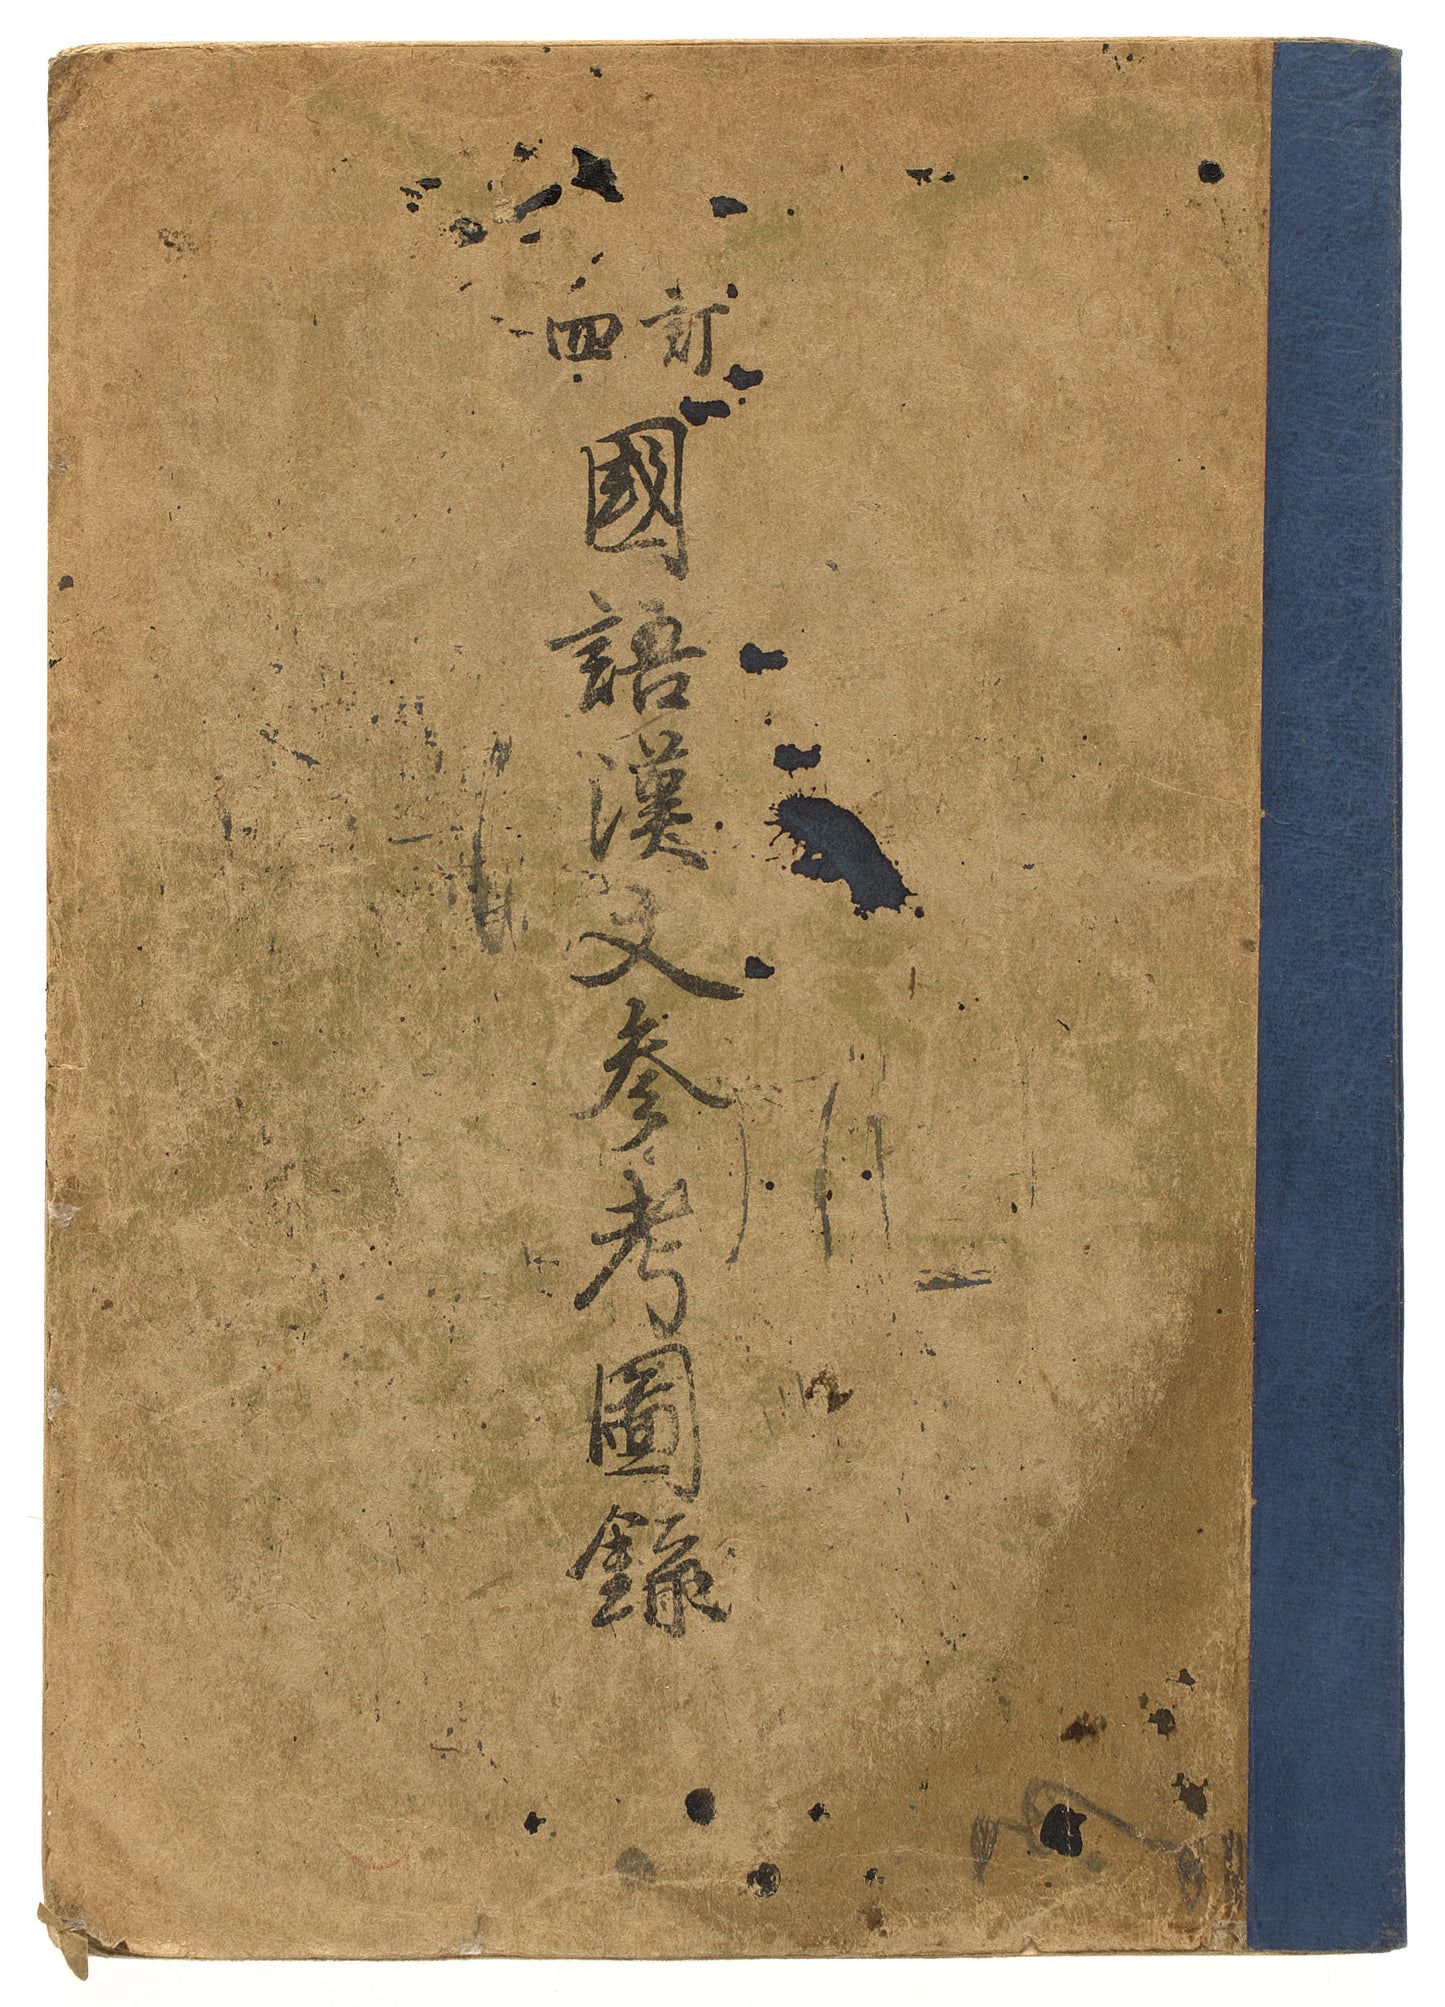 訂四
國語漢文参考圖録